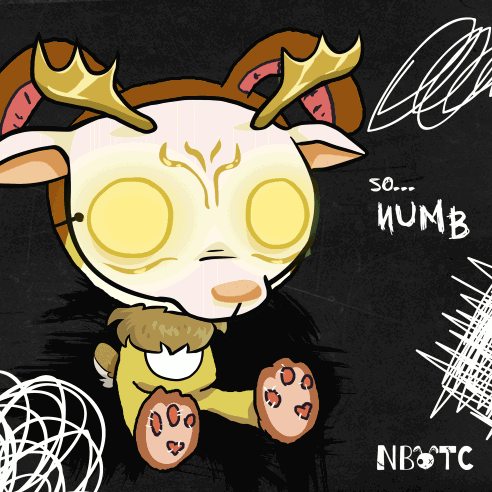 so...
NUMB
NBOTC